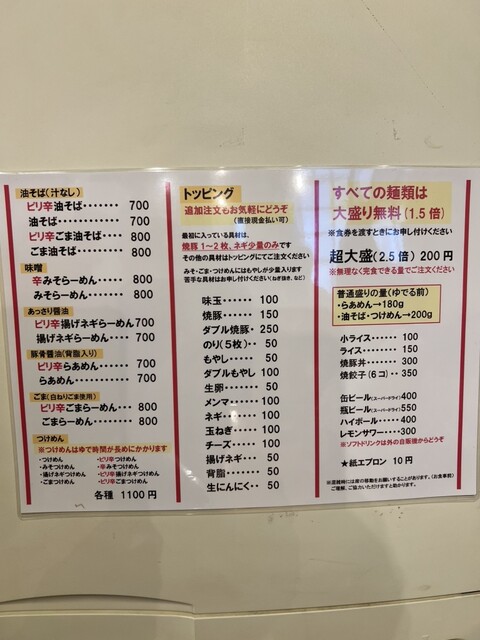 油そば(汁なし)
ピリ辛油そば‥‥‥‥ 700
油そば‥‥‥‥‥ 700
ピリ辛ごま油そば‥‥ 800
ごま油そば‥‥‥‥ 800
味噌
辛みそらーめん‥‥‥ 800
みそらーめん‥‥‥‥ 800
あっさり醤油
ピリ辛揚げネギらーめん 700
揚げネギらーめん‥‥ 700
豚骨醤油(背脂入り)
ピリ辛らぁめん‥‥‥ 700
らぁめん‥‥‥‥‥ 700
ごま(白ねりごま使用)
ピリ辛ごまらーめん‥‥ 800
ごまらーめん‥‥‥ 800
つけめん
※つけめんはゆで時間が長めにかかります
・つけめん ・ピリ辛つけめん
・みそつけめん ・辛みそつけめん
・揚げネギつけめん ・ピリ辛揚げネギつけめん
・ごまつけめん ・ピリ辛ごまつけめん
各種 1100円
トッピング
追加注文もお気軽にどうぞ
(直接現金払い可)
最初に入っている具材は、
焼豚1~2枚、ネギ少量のみです
その他の具材はトッピングにてご注文ください
みそ・ごま・つけめんにはもやしが少量入ります
苦手な具材はお申し付けください(ねぎ抜き、など)
味玉‥‥‥ 100
焼豚‥‥‥ 150
ダブル焼豚‥ 250
のり(5枚)‥ 50
もやし‥‥‥ 50
ダブルもやし 100
生卵‥‥‥ 50
メンマ‥‥‥ 100
ネギ‥‥‥‥ 100
玉ねぎ‥‥‥ 100
チーズ‥‥‥ 100
揚げネギ‥‥ 50
背脂‥‥‥‥ 50
生にんにく‥‥ 50
すべての麺類は
大盛り無料(1.5倍)
※食券を渡すときにお申し付けください
超大盛(2.5倍) 200円
※無理なく完食できる量でご注文ください
普通盛りの量(ゆでる前)
・らぁめん→180g
・油そば・つけめん→200g
小ライス‥‥‥ 100
ライス‥‥‥‥ 150
焼豚丼‥‥‥‥ 300
焼餃子(6コ)‥‥ 350
缶ビール(スーパードライ)400
瓶ビール(スーパードライ)550
ハイボール‥‥‥400
レモンサワー‥‥300
※ソフトドリンクは外の自販機からどうぞ
★紙エプロン 10円
※混雑時には席の移動をお願いすることがあります。(お食事前)
ご理解、ご協力いただけますと助かります。